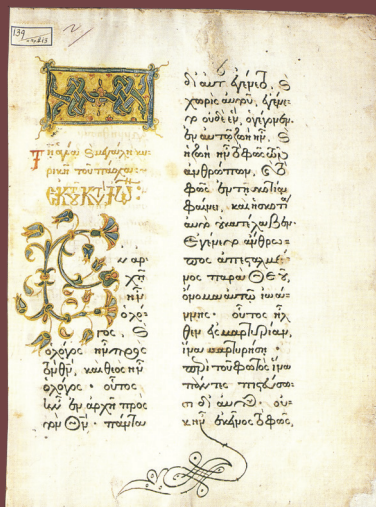 139
Τῇ ἁγίᾳ ϗ μεγάλῃ κυ-
ριακῇ τοῦ πάσχα:
Ἐν ἀρ
χῇ
ἦν
ὁ λό
γος, ϗ
ὁ λόγος ἦν πρὸς
τὸν θν, καὶ θεος ἦν
ὁ λόγος. οὗτος
ἦν ἐν ἀρχῇ πρὸς
τὸν Θν. πάντα
δι' αὐτοῦ ἐγένετο, ϗ
χωρὶς αὐτοῦ, ἐγένε-
το οὐδὲ ἕν, ὃ γέγονεν.
ἐν αὐτῷ ζωὴ ἦν. ϗ
ἡ ζωὴ ἦν τὸ φῶς τῶν
ἀνθρώπων, ϗ τὸ
φῶς ἐν τῇ σκοτίᾳ
φαίνει, καὶ ἡ σκοτί
α αὐτὸ οὐ κατέλαβεν.
Ἐγένετο ἄνθρω-
πος ἀπεσταλμέ
νος παρὰ Θεοῦ,
ὄνομα αὐτῷ ἰωάν-
νης. οὗτος ἦλ
θεν εἰς μαρτυρίαν,
ἵνα μαρτυρήσῃ
περὶ τοῦ φωτὸς ἵνα
πάντες πιστεύσω-
σι δι' αὐτοῦ. οὐ-
κ ἦν ἐκεῖνος τὸ φῶς,